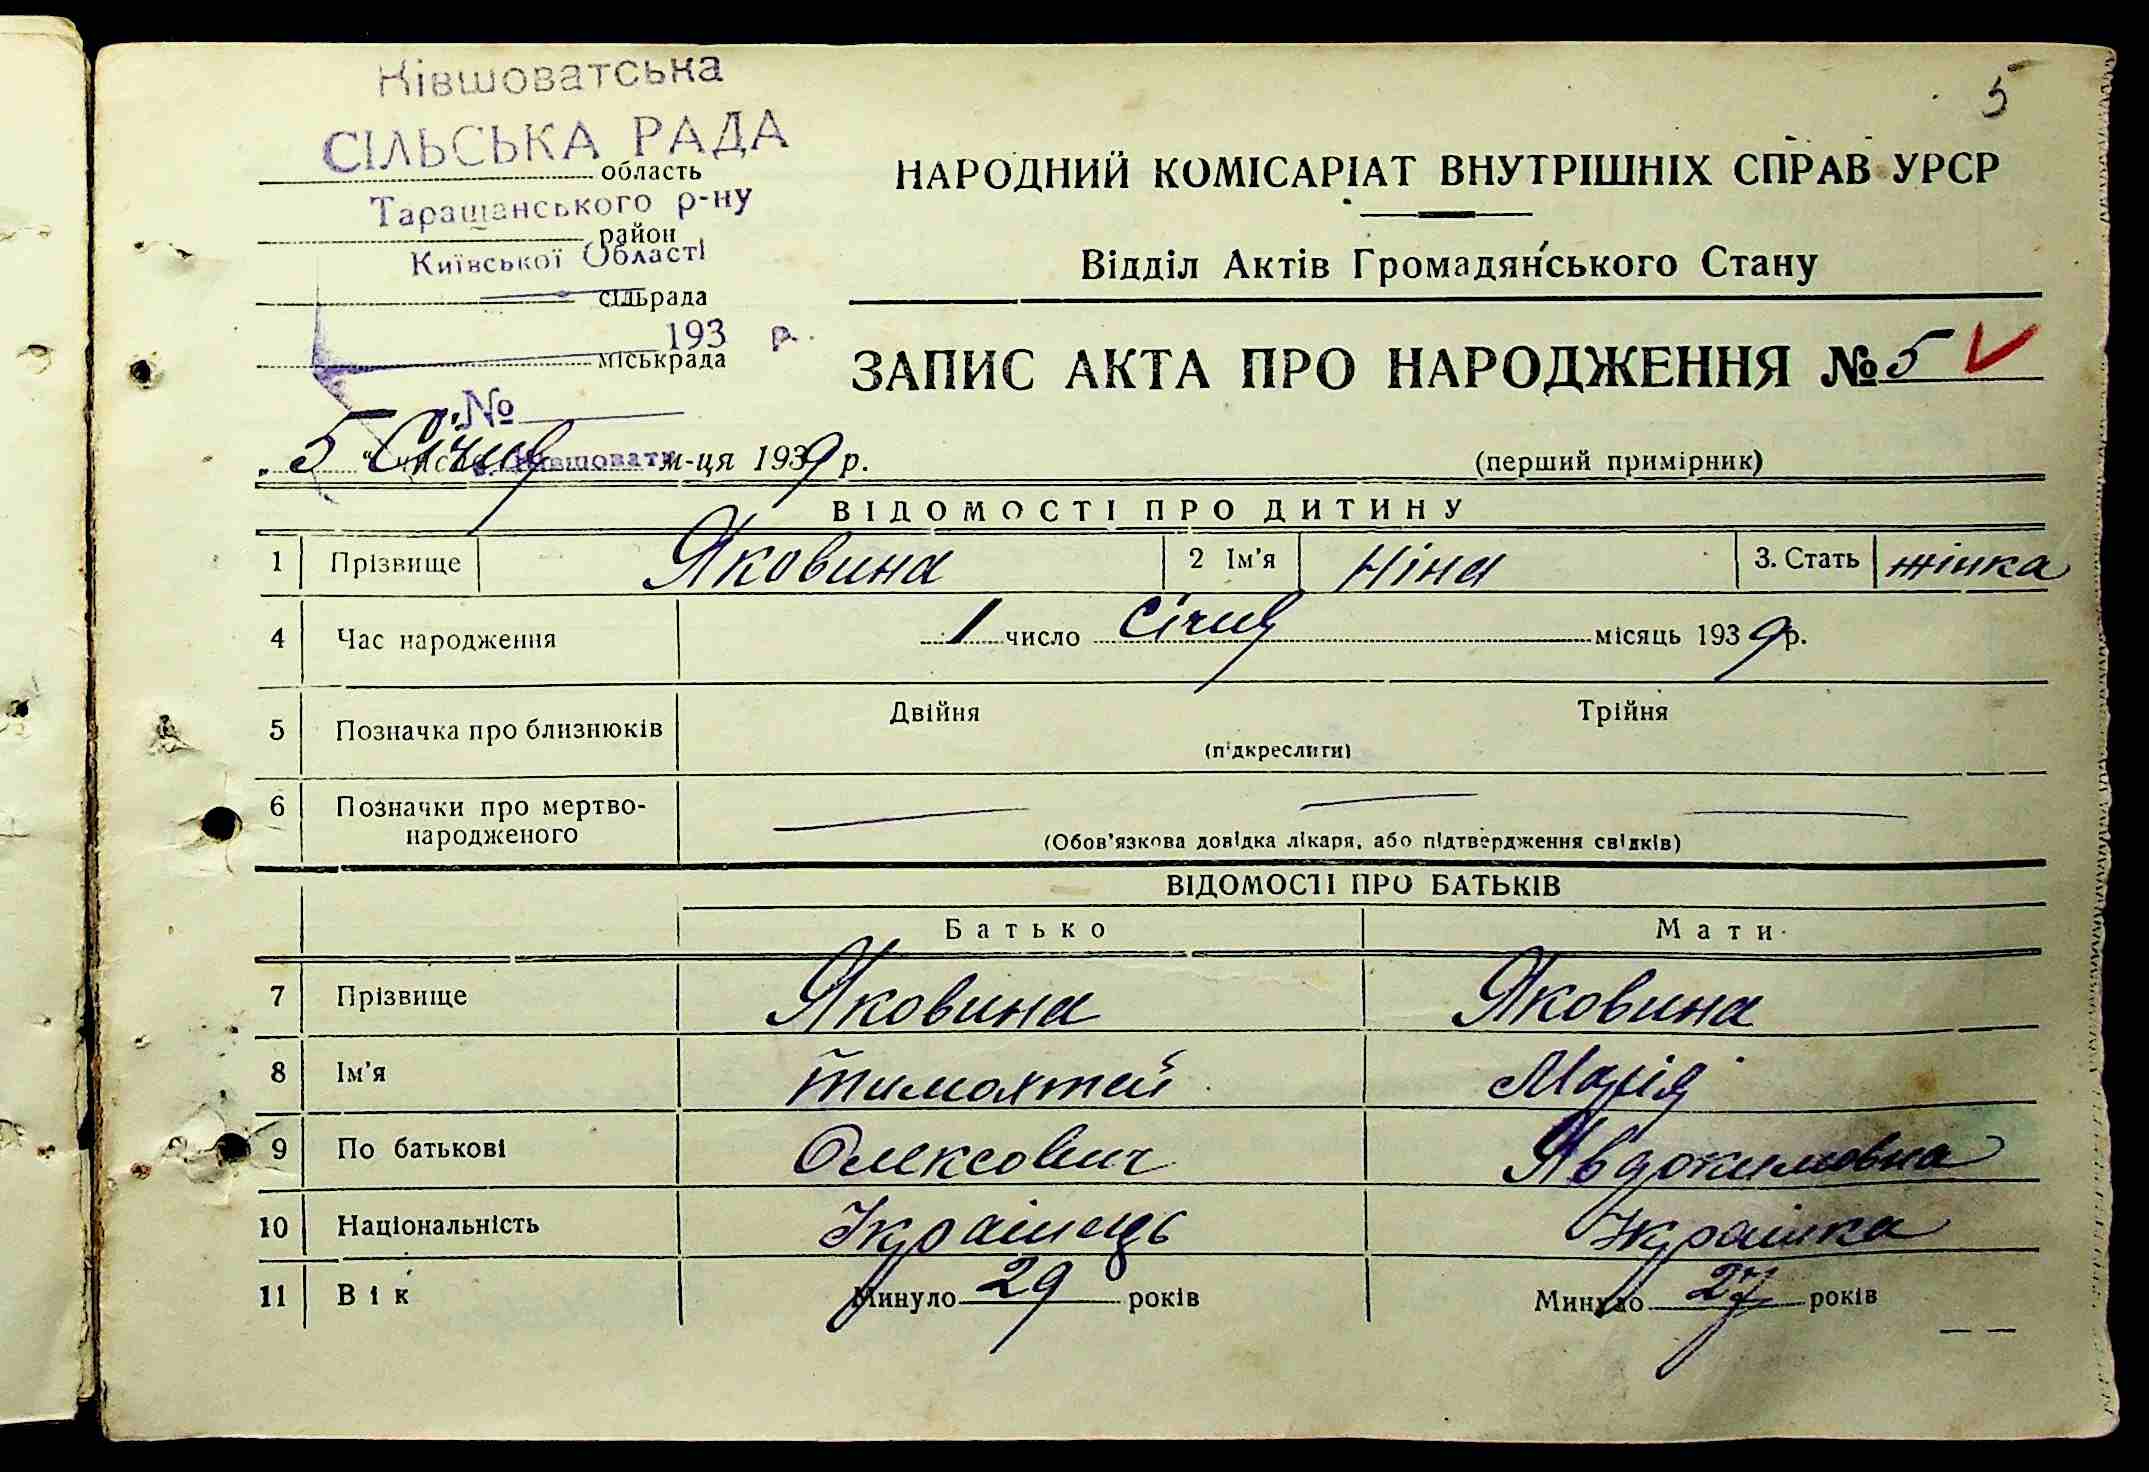 Ківшоватська
5
СІЛЬСЬКА РАДА
область
НАРОДНИЙ КОМІСАРІАТ ВНУТРІШНІХ СПРАВ УРСР
Таращанського р-ну
район
Київської Області
Відділ Актів Громадянського Стану
сільрада
193 р.
міськрада
ЗАПИС АКТА ПРО НАРОДЖЕННЯ № 5
№
„ 5 “ числа Січня м-ця 1939 р.
с. Ківшовата
(перший примірник)
ВІДОМОСТІ ПРО ДИТИНУ
1 Прізвище Яковина 2 Ім'я Ніна 3. Стать жінка
4 Час народження 1 число Січня місяць 1939 р.
5 Позначка про близнюків Двійня Трійня
(підкреслити)
6 Позначки про мертво-
народженого
(Обов'язкова довідка лікаря, або підтвердження свідків)
ВІДОМОСТІ ПРО БАТЬКІВ
Батько Мати
7 Прізвище Яковина Яковина
8 Ім'я Тимохтей Марія
9 По батькові Олексович Явдокимовна
10 Національність Українець Українка
11 Вік Минуло 29 років Минуло 27 років